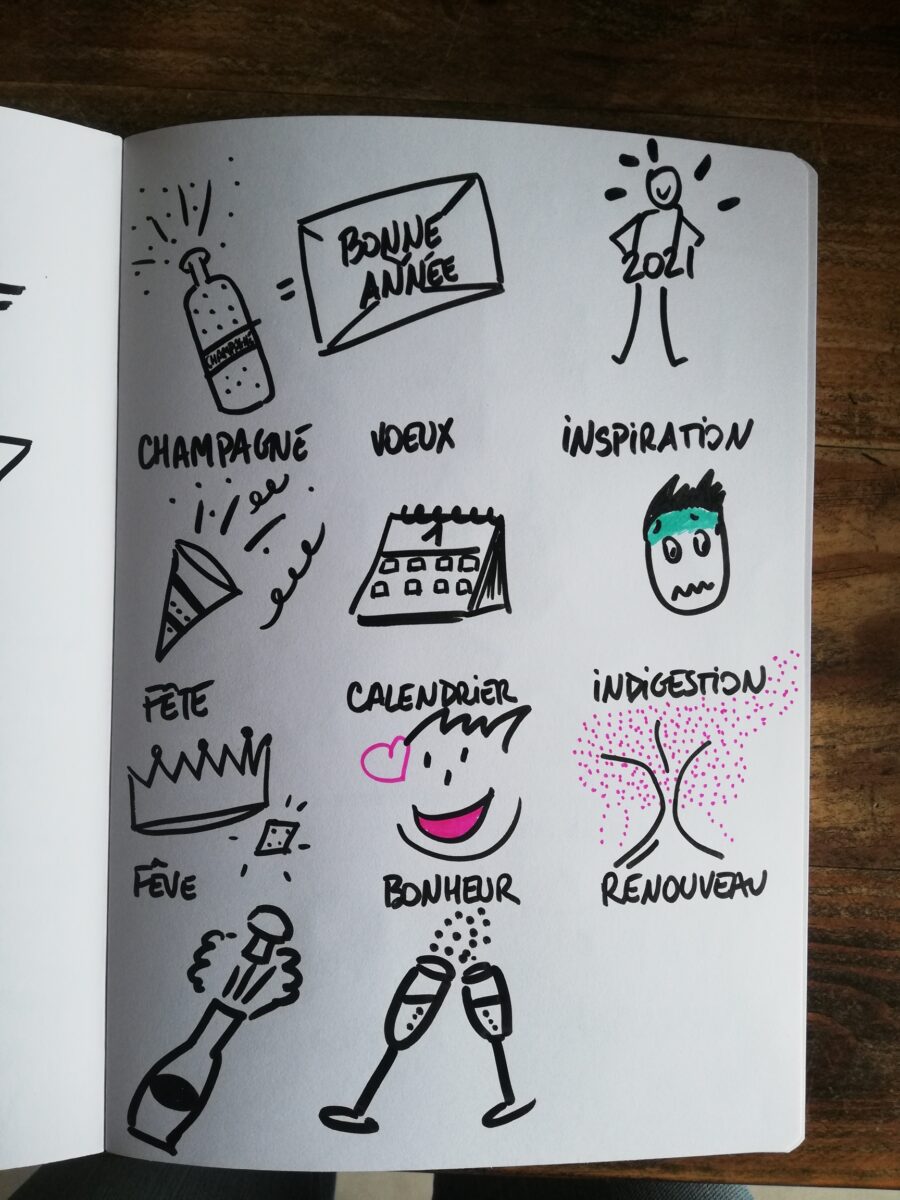 BONNE
ANNÉE
2021
CHAMPAGNE
=
CHAMPAGNE
VOEUX
INSPIRATION
1
FÊTE
CALENDRIER
INDIGESTION
FÊVE
BONHEUR
RENOUVEAU